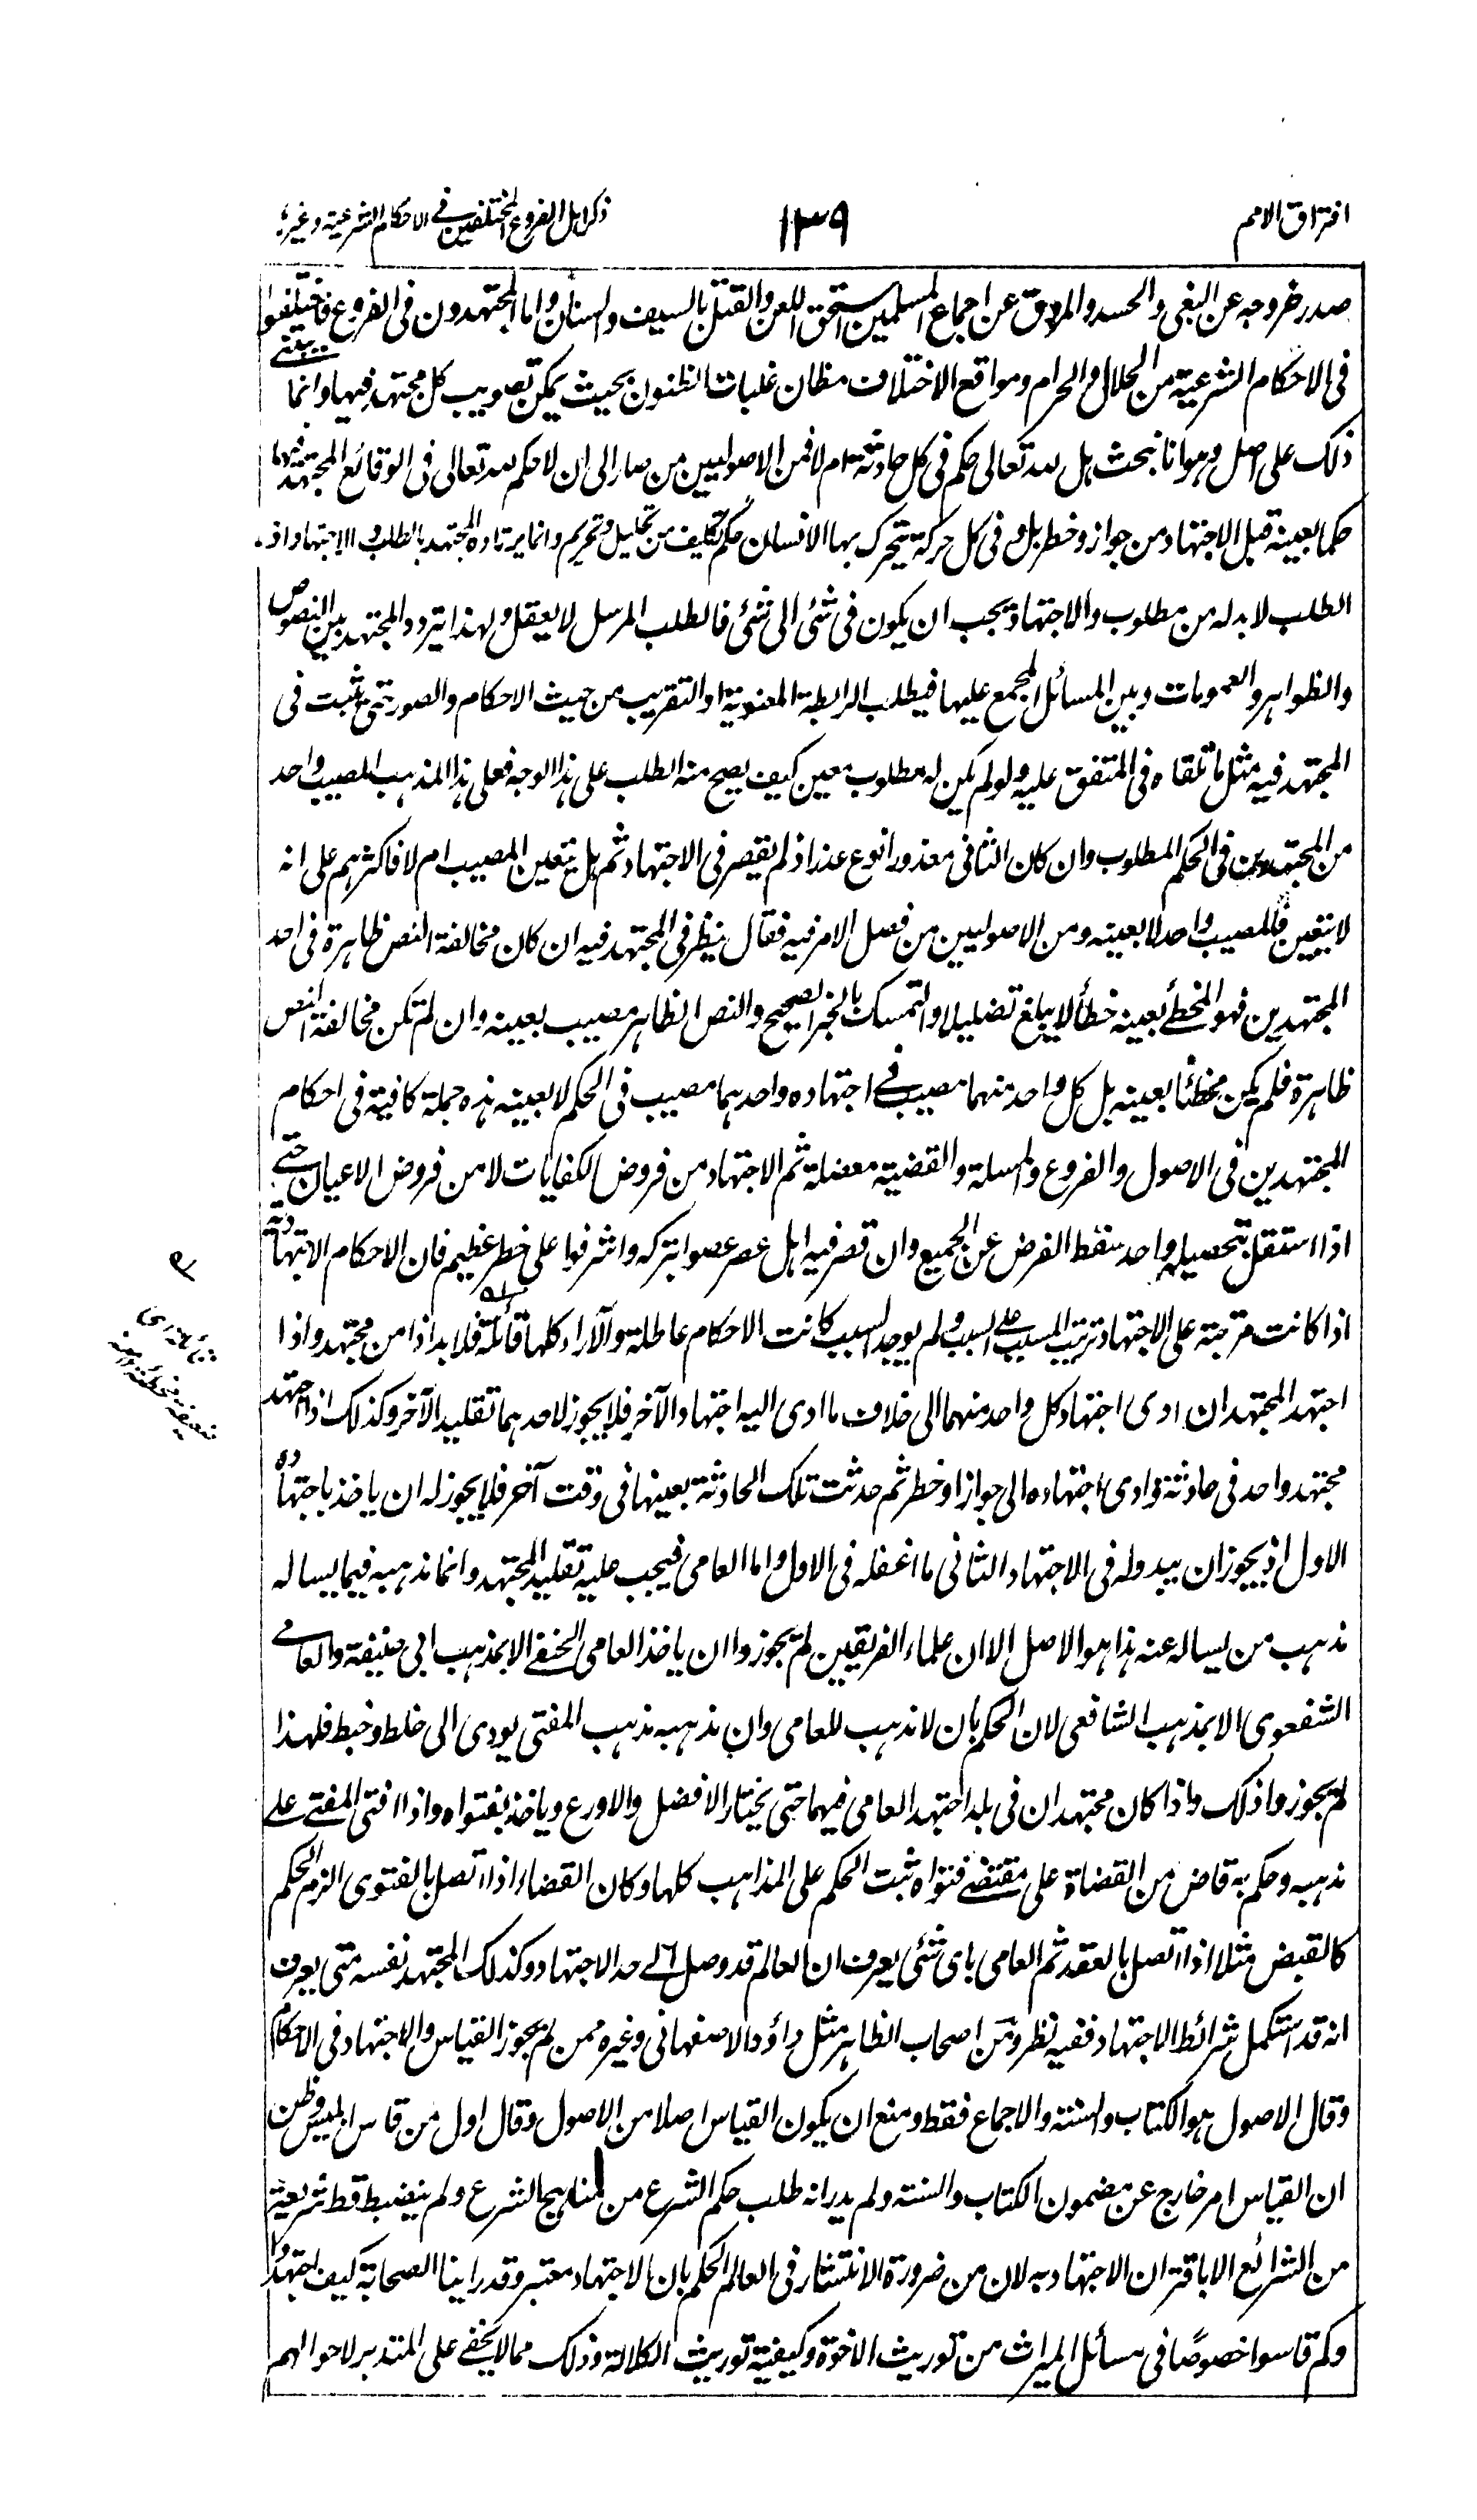 افتراق الامم
١٣٩
ذكر اهل الفروع المختلفين فى الاحكام الشرعية وغيره
صدر خروجه عن البغى والحسد والمروق عن اجماع المسلمين استحق اللعن والقتل بالسيف والسنان واما المجتهدون فى الفروع فاختلفوا
فى الاحكام الشرعية من الحلال والحرام ومواقع الاختلاف مظان غلبات الظنون بحيث يمكن تصويب كل مجتهد فيها وانما يبتنى
ذلك على اصل وهو انا نبحث هل لله تعالى حكم فى كل حادثة ام لا فمن الاصوليين من صار الى ان لا حكم لله تعالى فى الوقائع المجتهد فيها
حكما بعينه قبل الاجتهاد من جواز وخطر بل وفى كل حركة يتحرك بها الانسان حكم تكليف من تحليل وتحريم وانما يرتاده المجتهد بالطلب والاجتهاد اذ
الطلب لا بد له من مطلوب والاجتهاد يجب ان يكون فى شئ الى شئ فالطلب المرسل لا يعقل ولهذا يتردد المجتهد بين النصوص
والظواهر والعمومات وبين المسائل المجمع عليها فيطلب الرابطة المعنوية او التقريب من حيث الاحكام والصور حتى يثبت فى
المجتهد فيه مثل ما تلقاه فى المتفق عليه ولو لم يكن له مطلوب معين كيف يصح منه الطلب على هذا الوجه فعلى هذا المذهب المصيب واحد
من المجتهدين فى الحكم المطلوب وان كان الثانى معذورا نوع عذر اذ لم يقصر فى الاجتهاد ثم هل يتعين المصيب ام لا فاكثرهم على انه
لا يتعين فالمصيب واحد لا بعينه ومن الاصوليين من فصل الامر فيه فقال ينظر فى المجتهد فيه ان كان مخالفة النص ظاهرة فى احد
المجتهدين فهو المخطئ بعينه خطأ لا يبلغ تضليلا والمتمسك بالخبر الصحيح والنص الظاهر مصيب بعينه وان لم تكن مخالفة النص
ظاهرة فلم يكن مخطئا بعينه بل كل واحد منهما مصيب فى اجتهاده واحدهما مصيب فى الحكم لا بعينه هذه جملة كافية فى احكام
المجتهدين فى الاصول والفروع والمسلة والقضية معضلة ثم الاجتهاد من فروض الكفايات لا من فروض الاعيان حتى
اذا استقل بتحصيله واحد سقط الفرض عن الجميع وان قصر فيه اهل عصر عصوا بتركه واشرفوا على خطر عظيم فان الاحكام الاجتهادية
اذا كانت مترتبة على الاجتهاد ترتب المسبب على السبب ولم يوجد السبب كانت الاحكام عاطلة والآراء كلها قائلة فلا بد اذا من مجتهد واذا
اجتهد المجتهدان وادى اجتهاد كل واحد منهما الى خلاف ما ادى اليه اجتهاد الآخر فلا يجوز لاحدهما تقليد الآخر وكذلك اذا اجتهد
مجتهد واحد فى حادثة وادى اجتهاده الى جواز او خطر ثم حدثت تلك الحادثة بعينها فى وقت آخر فلا يجوز له ان ياخذ باجتهاده
الاول اذ يجوز ان يبدو له فى الاجتهاد الثانى ما اغفله فى الاول واما العامى فيجب عليه تقليد المجتهد وانما مذهبه فيما يساله
مذهب من يساله عنه هذا هو الاصل الا ان علماء الفريقين لم يجوزوا ان ياخذ العامى الحنفى الا بمذهب ابى حنيفة والعامى
الشفعوى الا بمذهب الشافعى لان الحكم بان لا مذهب للعامى وان مذهبه مذهب المفتى يودى الى خلط وخبط فلهذا
لم يجوزوا ذلك واذا كان مجتهدان فى بلد اجتهد العامى فيهما حتى يختار الافضل والاورع وياخذ بفتواه واذا افتى المفتى على
مذهبه وحكم به قاض من القضاة على مقتضى فتواه ثبت الحكم على المذاهب كلها وكان القضاء اذا اتصل بالفتوى الزم الحكم
كالقبض مثلا اذا اتصل بالعقد ثم العامى باى شئ يعرف ان العالم قد وصل الى حد الاجتهاد وكذلك المجتهد نفسه متى يعرف
انه قد استكمل شرائط الاجتهاد ففيه نظر ومن اصحاب الظاهر مثل داؤد الاصفهانى وغيره ممن لم يجوز القياس والاجتهاد فى الاحكام
وقال الاصول هو الكتاب والسنة والاجماع فقط ومنع ان يكون القياس اصلا من الاصول وقال اول من قاس ابليس وظن
ان القياس امر خارج عن مضمون الكتاب والسنة ولم يدر انه طلب حكم الشرع من مناهج الشرع ولم ينضبط قط شريعة
من الشرائع الا باقتران الاجتهاد به لان من ضرورة الانتشار فى العالم الحكم بان الاجتهاد معتبر وقد راينا الصحابة كيف اجتهدوا
وكم قاسوا خصوصًا فى مسائل الميراث من توريث الاخوة وكيفية توريث الكلالة وذلك مما لا يخفى على المتدبر لاحوالهم